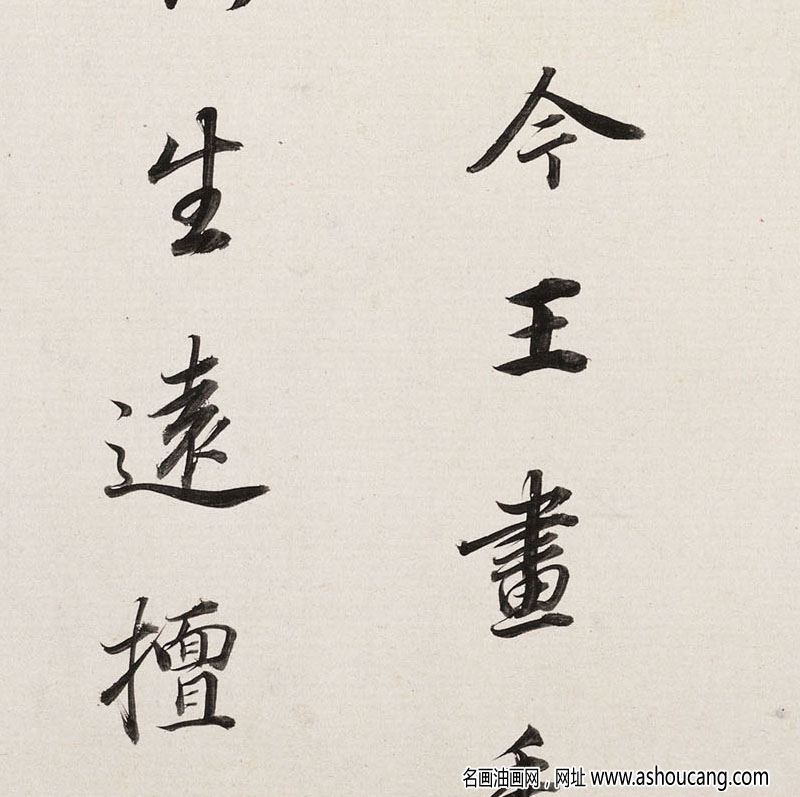 今王畫
生遠擅
名画油画网，网址 www.ashoucang.com